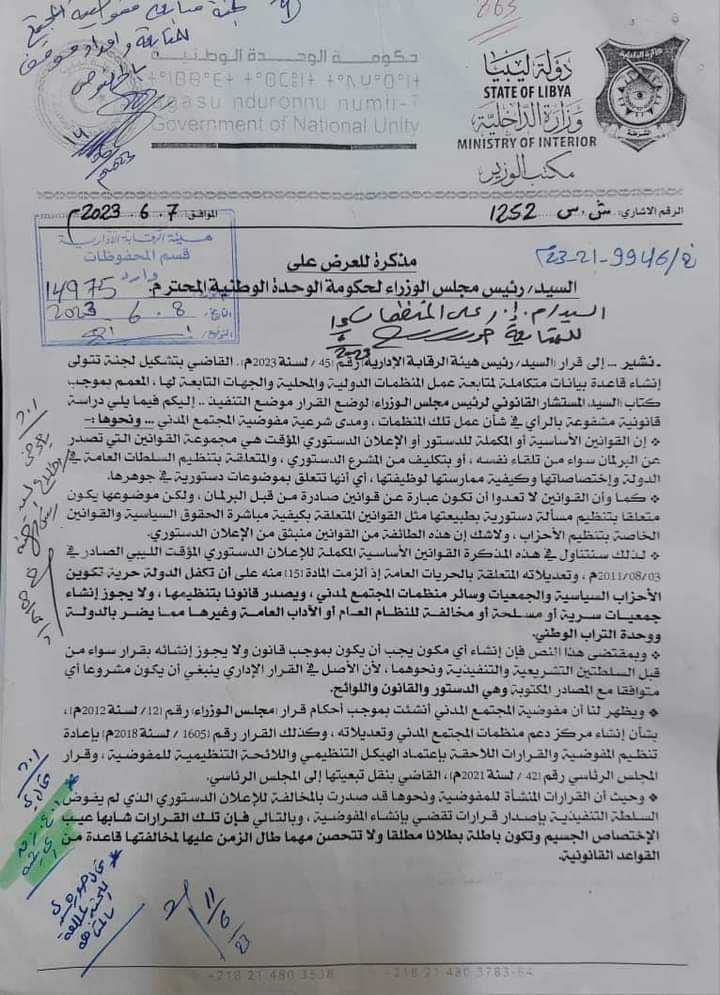 حكومة الوحدة الوطنية
Government of National Unity
دولة ليبيا
STATE OF LIBYA
وزارة الداخلية
MINISTRY OF INTERIOR
مكتب الوزير
الرقم الاشاري: ش س 1252
الموافق: 7. 6. 2023
هيئة الرقابة الإدارية
قسم المحفوظات
وارد
14975
8. 6. 2023
مذكرة للعرض على
السيد/ رئيس مجلس الوزراء لحكومة الوحدة الوطنية المحترم
- نشير ... إلى قرار (السيد/ رئيس هيئة الرقابة الإدارية) رقم (45 / لسنة 2023م)، القاضي بتشكيل لجنة تتولى
إنشاء قاعدة بيانات متكاملة لمتابعة عمل المنظمات الدولية والمحلية والجهات التابعة لها، المعمم بموجب
كتاب (السيد/ المستشار القانوني لرئيس مجلس الوزراء) لوضع القرار موضع التنفيذ .. إليكم فيما يلي دراسة
قانونية مشفوعة بالرأي في شأن عمل تلك المنظمات ، ومدى شرعية مفوضية المجتمع المدني ... ونحوها :-
❖ إن القوانين الأساسية أو المكملة للدستور أو الإعلان الدستوري المؤقت هي مجموعة القوانين التي تصدر
عن البرلمان سواء من تلقاء نفسه ، أو بتكليف من المشرع الدستوري ، والمتعلقة بتنظيم السلطات العامة في
الدولة وإختصاصاتها وكيفية ممارستها لوظيفتها ، أي أنها تتعلق بموضوعات دستورية في جوهرها.
❖ كما وأن القوانين لا تعدوا أن تكون عبارة عن قوانين صادرة من قبل البرلمان ، ولكن موضوعها يكون
متعلقا بتنظيم مسألة دستورية بطبيعتها مثل القوانين المتعلقة بكيفية مباشرة الحقوق السياسية والقوانين
الخاصة بتنظيم الأحزاب ، ولاشك إن هذه الطائفة من القوانين منبثق من الإعلان الدستوري.
❖ لذلك سنتناول في هذه المذكرة القوانين الأساسية المكملة للإعلان الدستوري المؤقت الليبي الصادر في
2011/08/03م ، وتعديلاته المتعلقة بالحريات العامة إذ ألزمت المادة (15) منه على أن تكفل الدولة حرية تكوين
الأحزاب السياسية والجمعيات وسائر منظمات المجتمع لمدني ، ويصدر قانونا بتنظيمها ، ولا يجوز إنشاء
جمعيات سرية أو مسلحة أو مخالفة للنظام العام أو الآداب العامة وغيرها مما يضر بالدولة
ووحدة التراب الوطني.
❖ وبمقتضى هذا النص فإن إنشاء أي مكون يجب أن يكون بموجب قانون ولا يجوز إنشائه بقرار سواء من
قبل السلطتين التشريعية والتنفيذية ونحوهما ، لأن الأصل في القرار الإداري ينبغي أن يكون مشروعا أي
متوافقا مع المصادر المكتوبة وهي الدستور والقانون واللوائح.
❖ ويظهر لنا أن مفوضية المجتمع المدني أنشئت بموجب أحكام قرار (مجلس الوزراء) رقم (12/ لسنة 2012م)،
بشأن إنشاء مركز دعم منظمات المجتمع المدني وتعديلاته ، وكذلك القرار رقم (1605 / لسنة 2018م) بإعادة
تنظيم المفوضية والقرارات اللاحقة بإعتماد الهيكل التنظيمي واللائحة التنظيمية للمفوضية ، وقرار
المجلس الرئاسي رقم (42 / لسنة 2021م)، القاضي بنقل تبعيتها إلى المجلس الرئاسي.
❖ وحيث أن القرارات المنشأة للمفوضية ونحوها قد صدرت بالمخالفة للإعلان الدستوري الذي لم يفوض
السلطة التنفيذية بإصدار قرارات تقضي بإنشاء المفوضية ، وبالتالي فإن تلك القرارات شابها عيب
الإختصاص الجسيم وتكون باطلة بطلانا مطلقا ولا تتحصن مهما طال الزمن عليها لمخالفتها قاعدة من
القواعد القانونية.